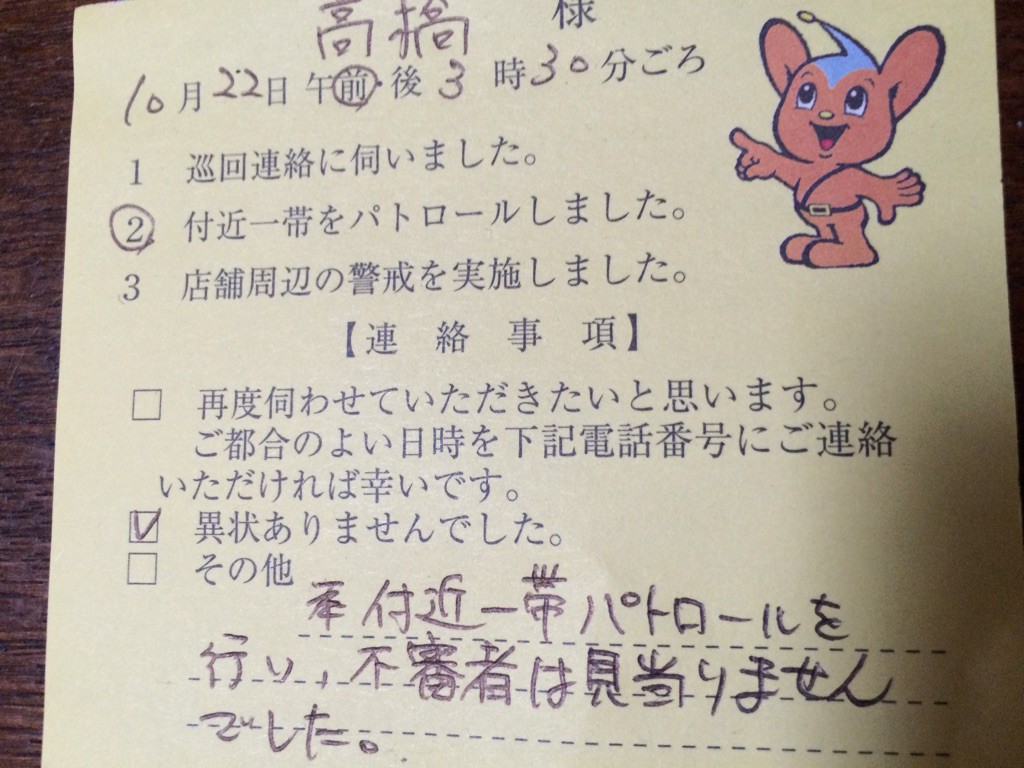 高橋 様
10月22日 午前・後 3 時 30 分ごろ
1 巡回連絡に伺いました。
2 付近一帯をパトロールしました。
3 店舗周辺の警戒を実施しました。
【連 絡 事 項】
□ 再度伺わせていただきたいと思います。
ご都合のよい日時を下記電話番号にご連絡
いただければ幸いです。
☑ 異状ありませんでした。
□ その他
付近一帯パトロールを
行い、不審者は見当りません
でした。